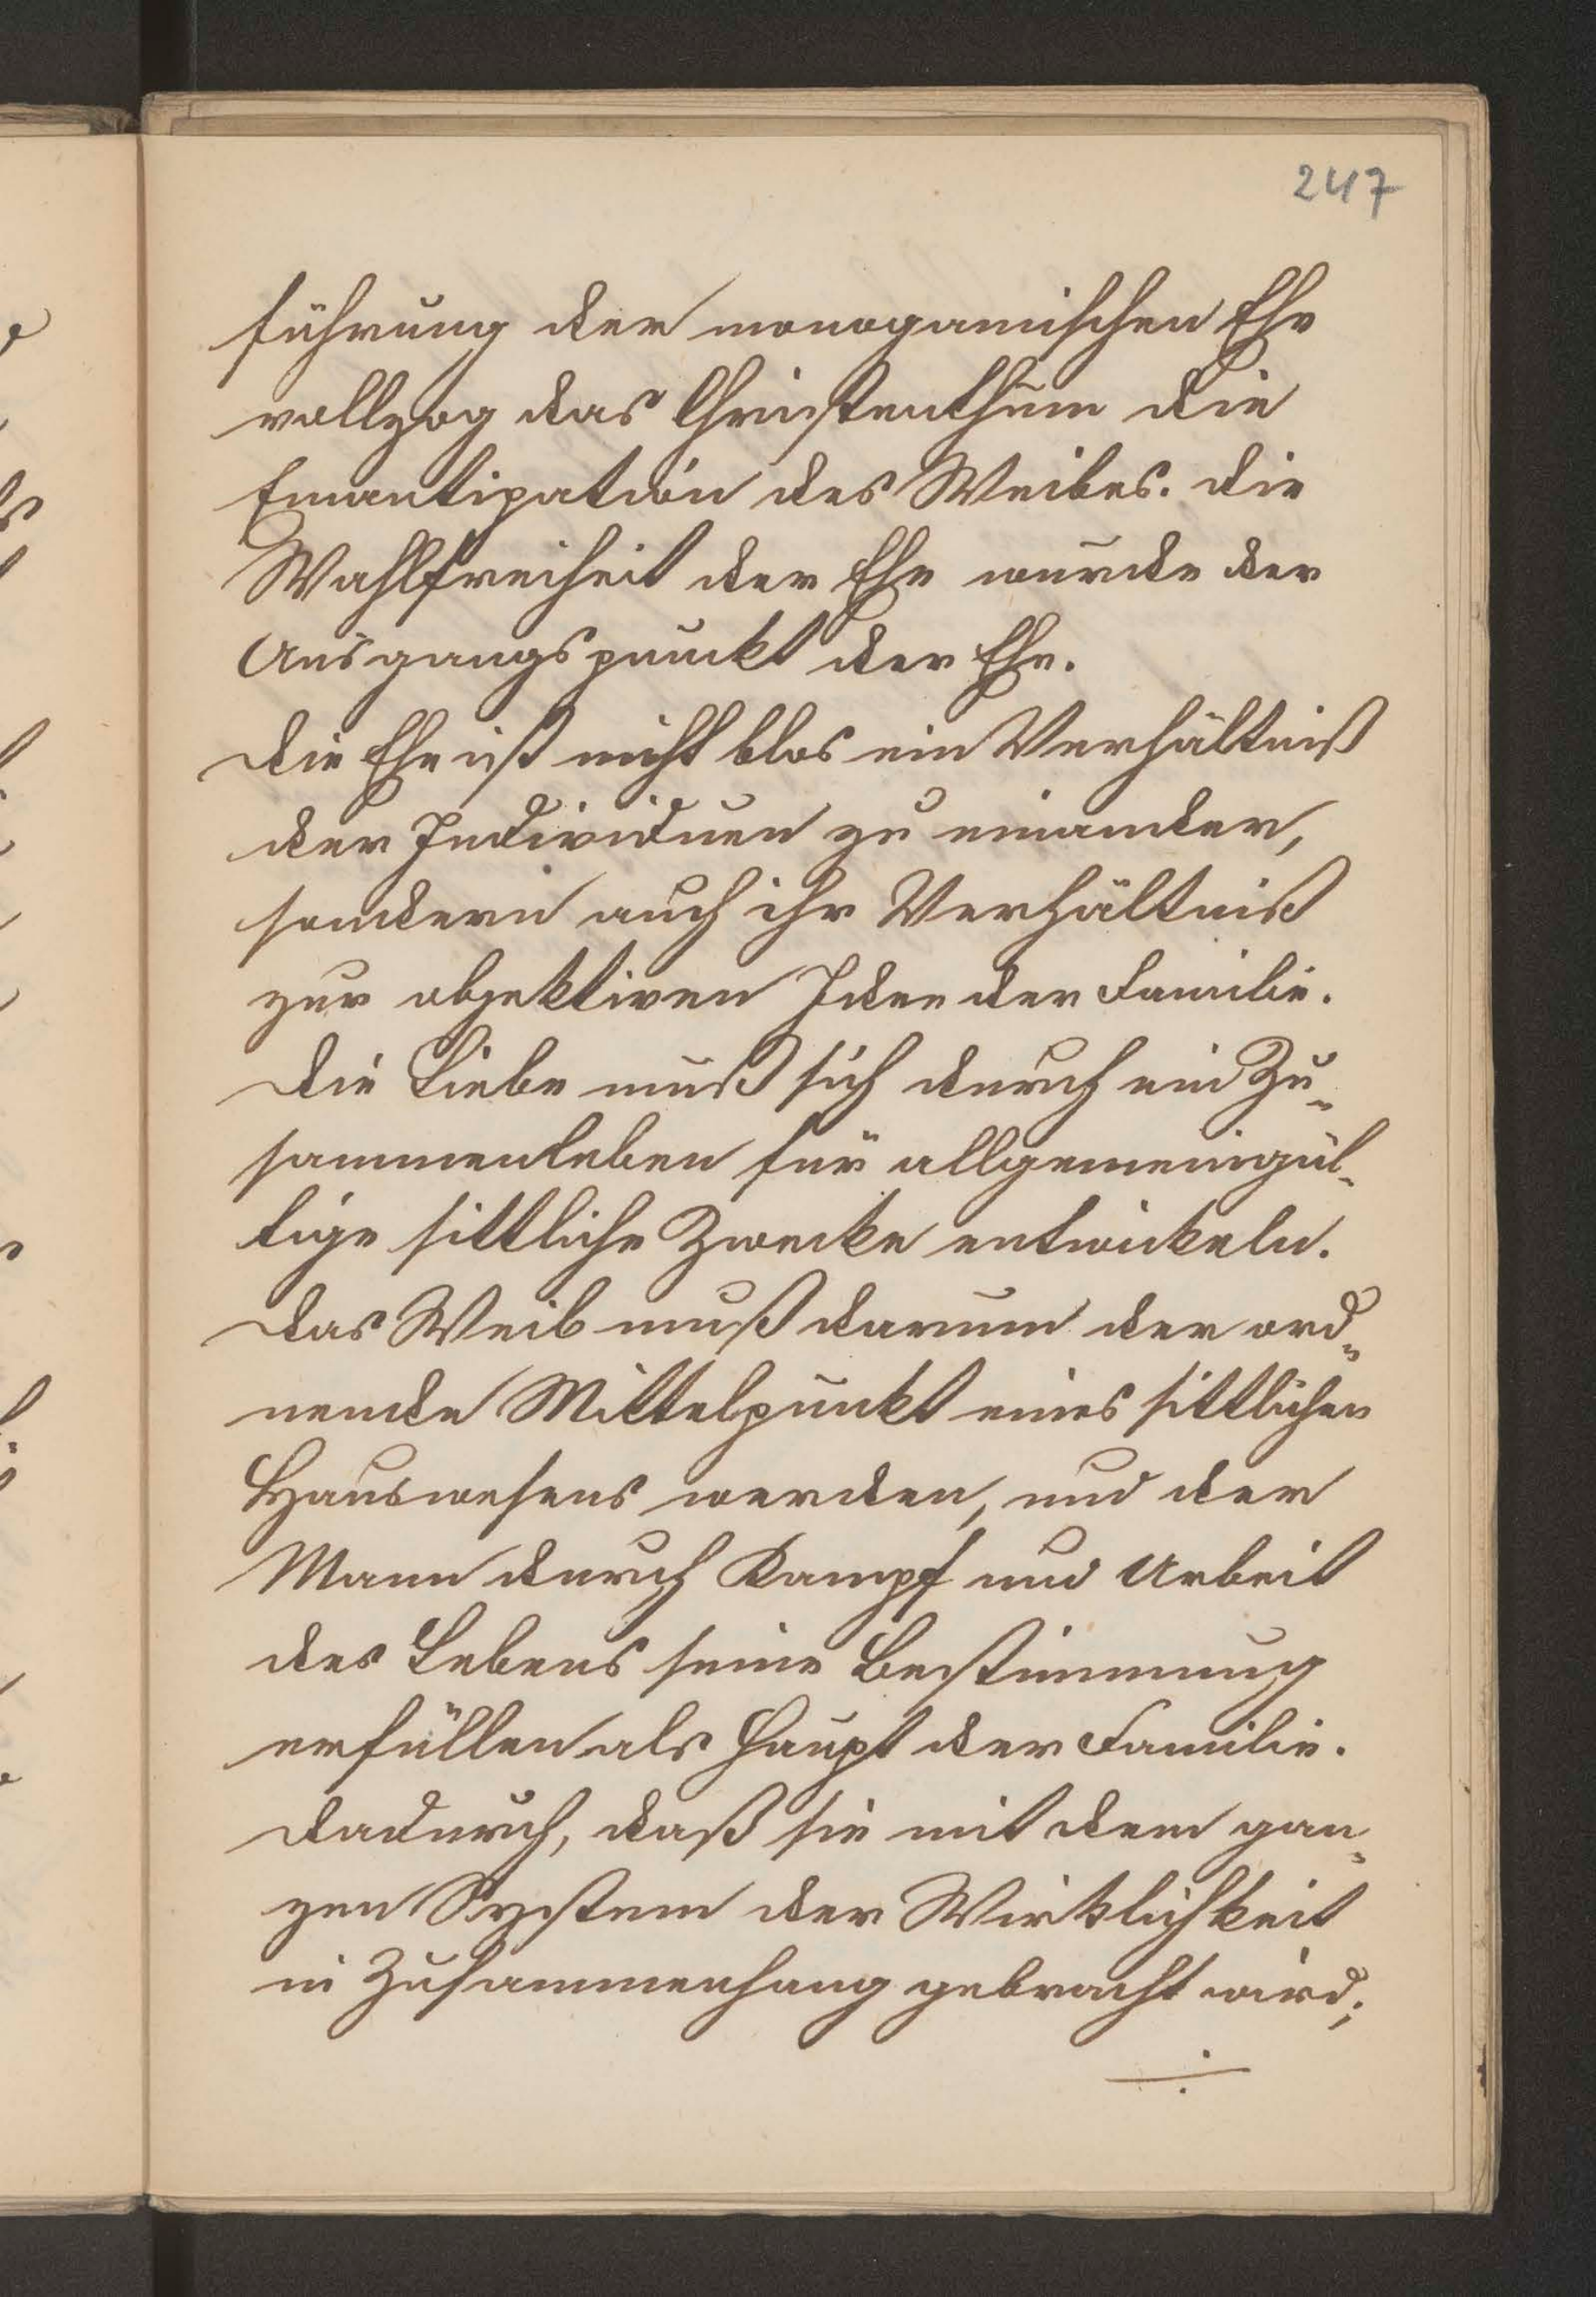 247
führung der monogamischen Ehe
vollzog das Christenthum die
Emantipation des Weibes. Die
Wahlfreiheit der Ehe wurde der
Ausgangspunckt der Ehe.
Die Ehe ist nicht blos ein Verhältniß
der Individuen zu einander,
sondern auch ihr Verhältniß
zur objektiven Idee der Familie.
Die Liebe muß sich durch ein Zu-
sammenleben für allgemeingül-
tige sittliche Zwecke entwickeln.
Das Weib muß darum der ord-
nende Mittelpunkt eines sittlichen
Hauswesens werden, und der
Mann durch Kampf und Arbeit
des Lebens seine Bestimmung
erfüllen als Haupt der Familie.
Dadurch, daß sie mit dem gan-
zen System der Wirklichkeit
in Zusammenhang gebracht wird;